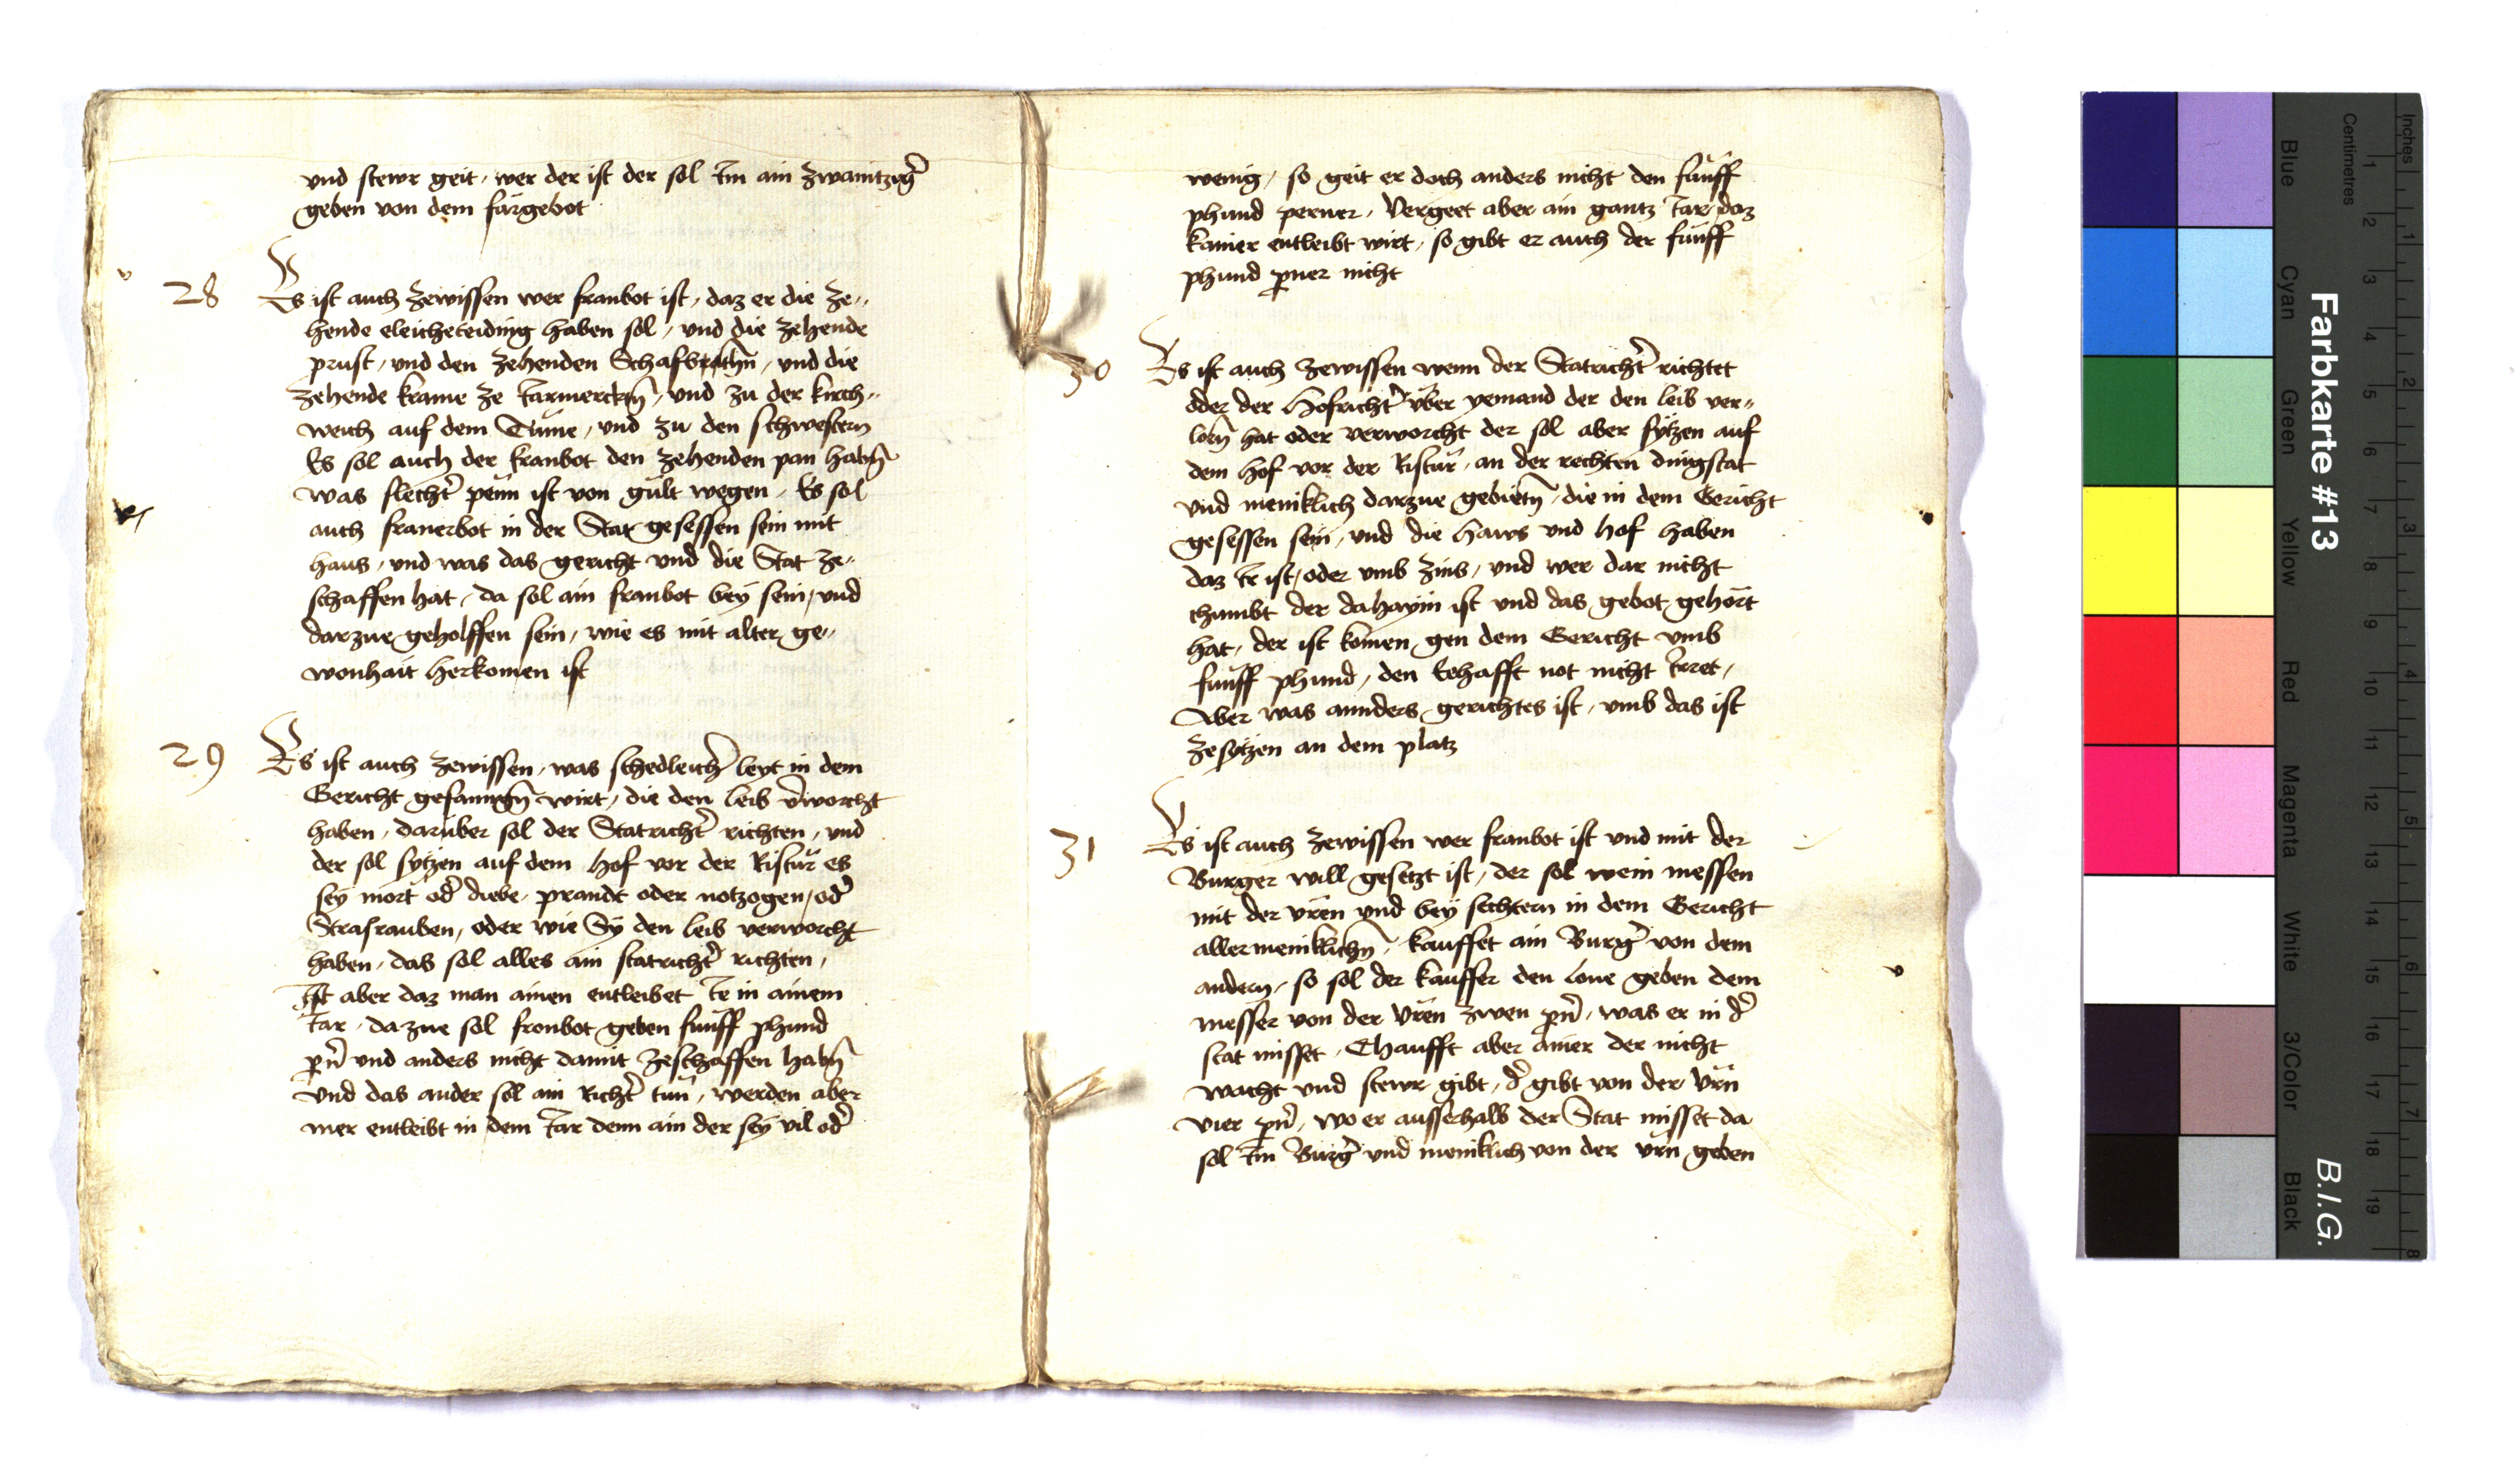 vnd stewr geit, wer der ist der sol Im ain zwaintzigr̄
geben von dem fürgebot
28
Es ist auch zewissen wer fronbot ist, daz er die ze„
hende eleicheteiding haben sol, vnd die zehende
prust, vnd den zehenden und die
zehende krame ze Jarmerckn̄, vnd zu der kirch„
weich auf dem Tume, vnd zu den schwestern
Es sol auch der fronbot den zehenden pan habn̄
was slechtr̄ penn ist von gült wegen, Es sol
auch fronerbot in der Stat gesessen sein mit
haus, vnd was das gericht vnd die Stat ze„
schaffen hat, da sol ain fronbot bey sein, vnd
darzue geholffen sein, wie es mit alter ge„
wonhait herkomen ist
29
Es ist auch zewissen, was schedleichr̄ leyt in dem
Gericht gefanngn̄ wirt, die den leib v̄worcht
haben, darüber sol der Statrichtr̄ richten, vnd
der sol sytzen auf dem Hof vor der Ristür es
sey mort odr̄ diebe, prandt oder notzogen, odr̄
Strasrauben, oder wie Sy den leib verworcht
haben, das sol alles ain statrichtr̄ richten,
Ist aber daz man ainen entleibet Je in ainem
Jar, dazue sol fronbot geben fünff phund
pn̄r und anders nicht damit zeschaffen habn̄
vnd das ander sol ain Richtr̄ tun, werden aber
mer entleibt in dem Jar denn ain der sey vil odr̄
wenig, so geit er doch anders nicht den fünff
phund perner, Vergeet aber ain gantz Jar daz
kainer entleibt wirt, so gibt er auch der fünff
phund pner nicht
30
Es ist auch zewissen wenn der Statrichtr̄ richtet
oder der Hofrichtr̄ über yemand der den leib ver„
lorn̄ hat oder verworcht der sol aber sytzen auf
dem Hof vor der Ristür, an der rechten dingstat
vnd meniklich darzue gebietn̄, die in dem Gericht
gesessen sein, vnd die Haws vnd Hof haben
daz Ir ist, oder vmb zins, vnd wer dar nicht
chumbt der dahayin ist vnd das gebot gehört
hat, der ist komen gen dem Gericht vmb
fünff phund, den Eehafft not nicht Irret,
Aber was annders gerichtes ist, vmb das ist
zesytzen an dem platz
31
Es ist auch zewissen wer fronbot ist vnd mit der
Burger will gesetzt ist, der sol wein messen
mit der vren vnd bey sechtern in dem Gericht
allermeniklichn̄, kauffet ain Burgr̄ von dem
andern, so sol der kauffer den lone geben dem
messer von der vren zwen pn̄r, was er in dr̄
stat misset, Chaufft aber ainer der nicht
wacht vnd stewr gibt, dr̄ gibt von der vrn
vier pn̄r, wo er ausserhalb der Stat misset da
sol Im Burgr̄ vnd meniklich von der vrn geben
Farbkarte #13
B.I.G.
Inches
Centimetres
Blue
Cyan
Green
Yellow
Red
Magenta
White
3/Color
Black
1
2
3
4
5
6
7
8
9
10
11
12
13
14
15
16
17
18
19
1
2
3
4
5
6
7
8